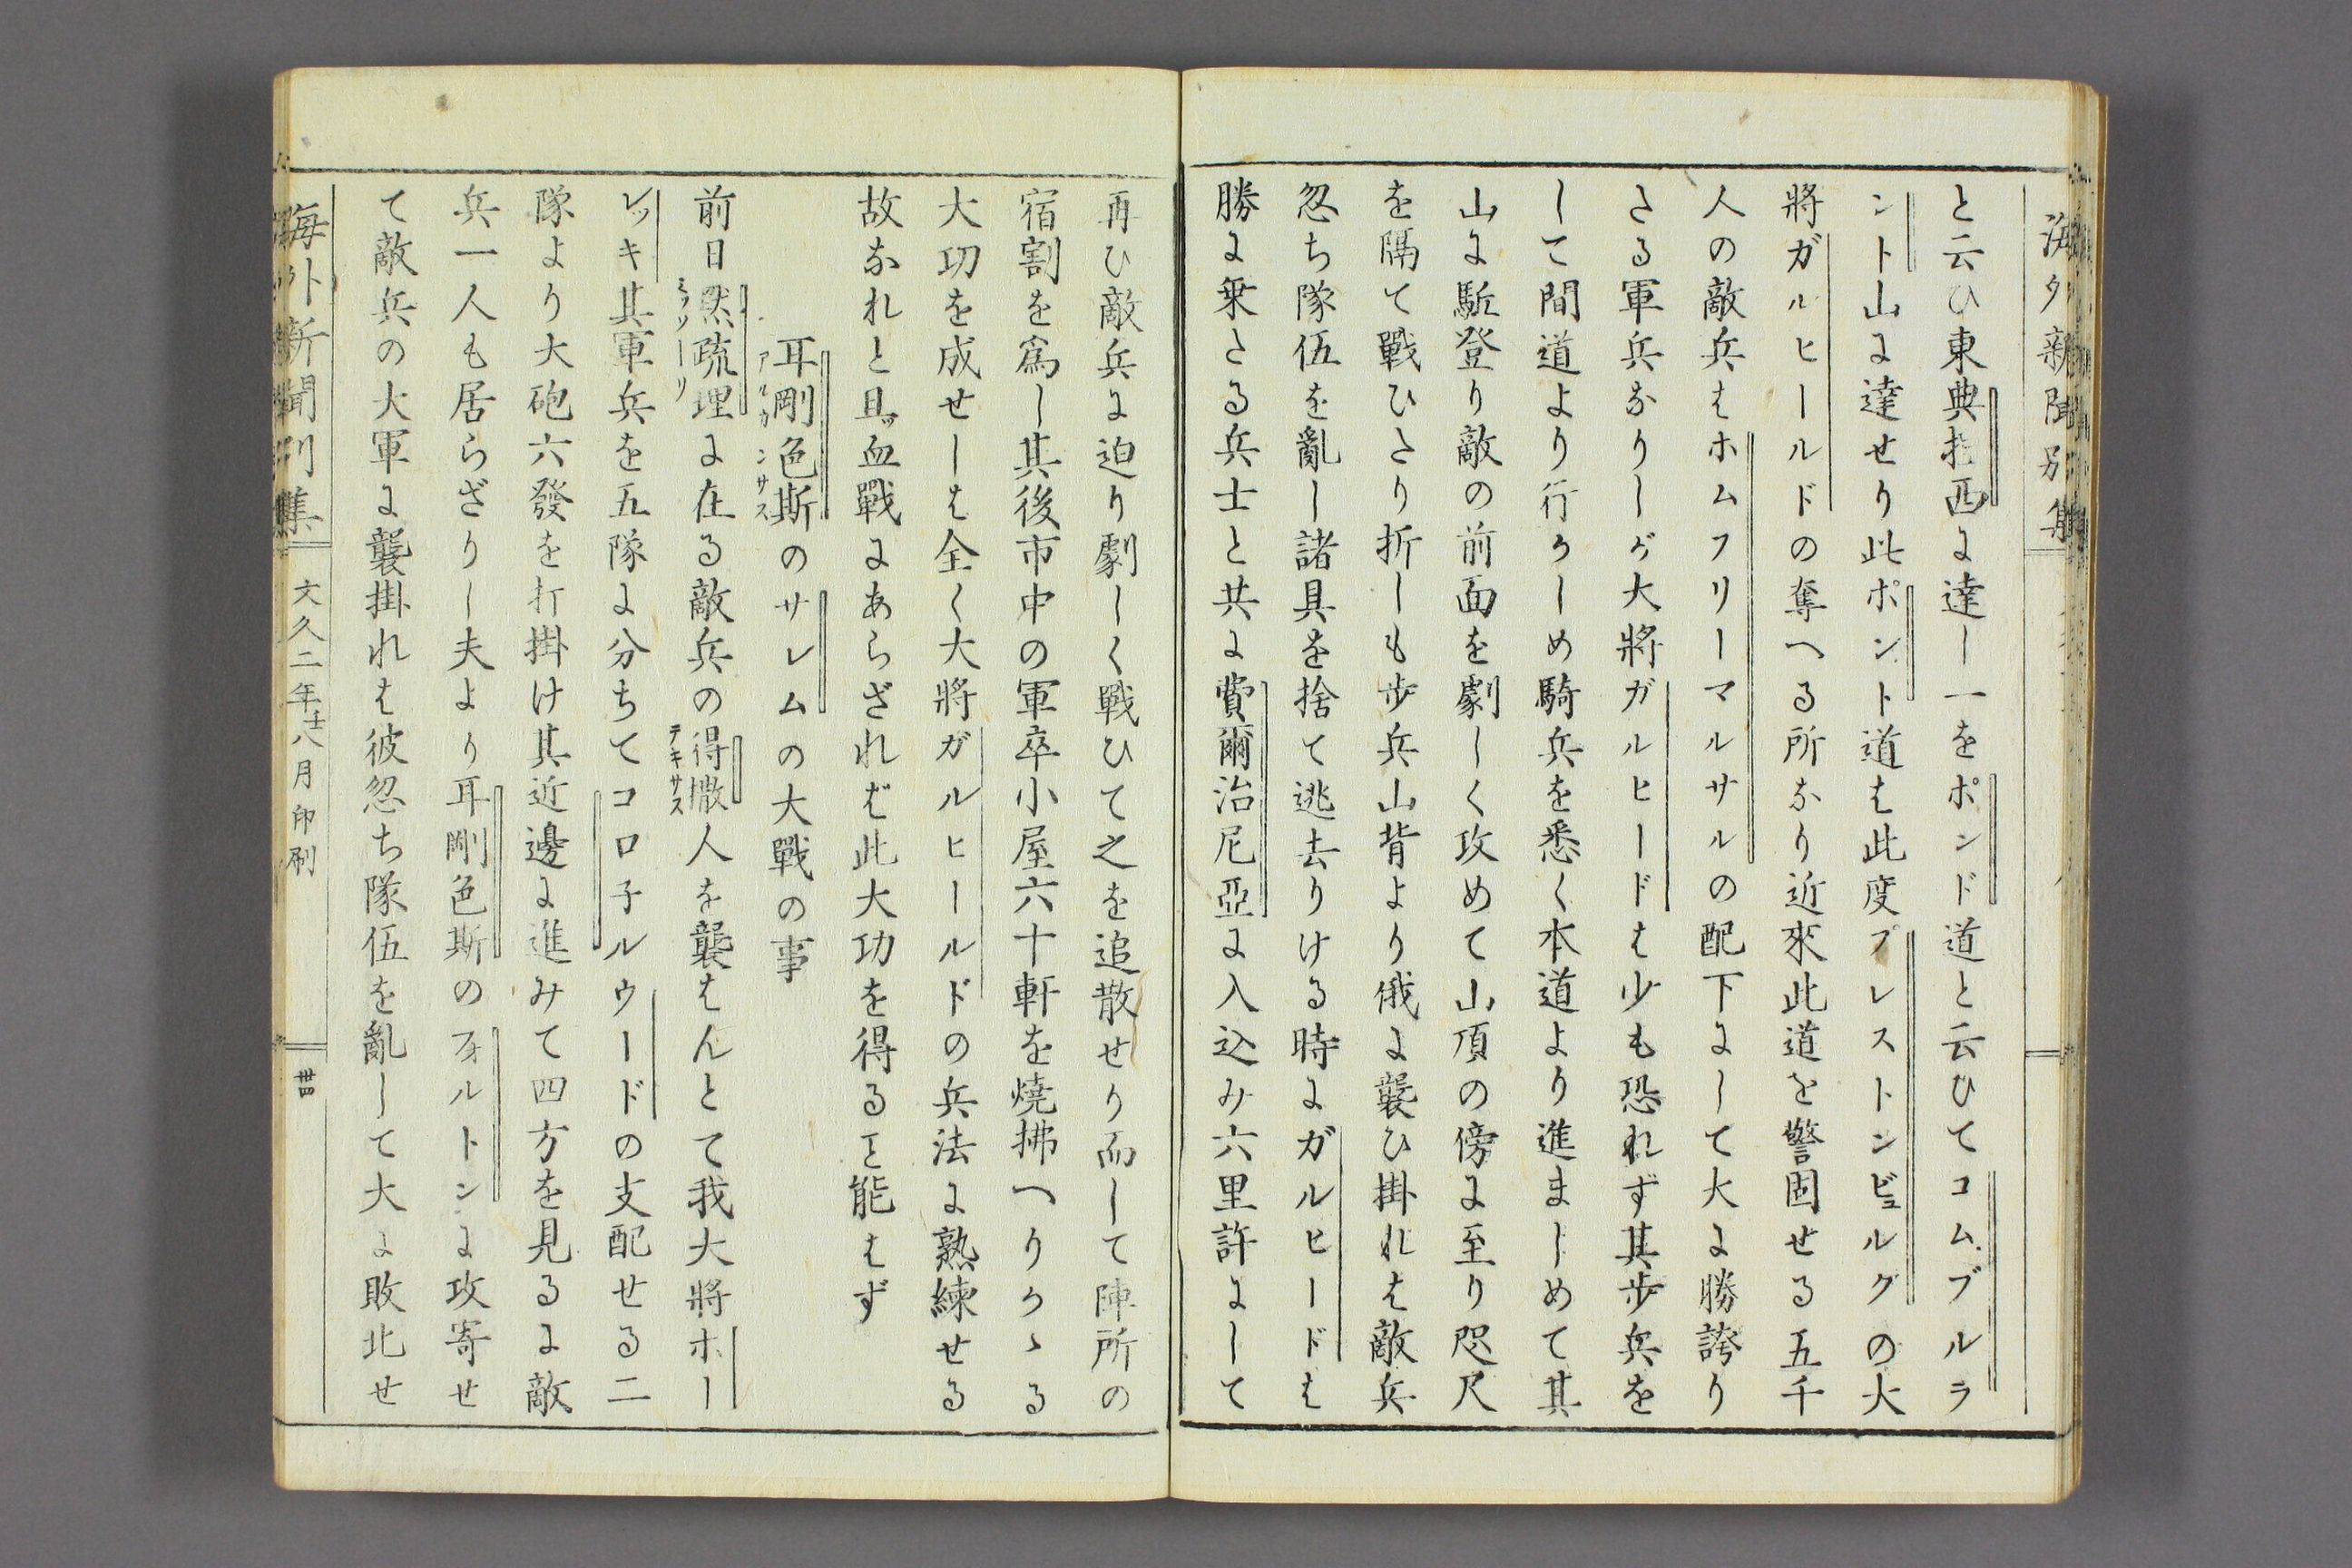 海外新聞別集
と云ひ東典拙西に達し一をポンド道と云ひてコムブルラ
ント山に達せり此ポント道は此度プレストンビュルグの大
將ガルヒールドの奪へる所なり近來此道を警固せる五千
人の敵兵はホムフリーマルサルの配下にして大に勝誇り
たる軍兵なりしが大將ガルヒードは少も恐れず其歩兵を
して間道より行かしめ騎兵を悉く本道より進ましめて其
山に駈登り敵の前面を劇しく攻めて山頂の傍に至り咫尺
を隔て戰ひたり折しも歩兵山背より俄に襲ひ掛れは敵兵
忽ち隊伍を亂し諸具を捨て逃去りける時にガルヒードは
勝に乗たる兵士と共に費爾治尼亞に入込み六里許にして
再ひ敵兵に迫り劇しく戰ひて之を追散せり而して陣所の
宿割を爲し其後市中の軍卒小屋六十軒を燒拂へりかゝる
大功を成せしは全く大將ガルヒールドの兵法に熟練せる
故なれと且ツ血戰にあらざれば此大功を得るヿ能はず
耳剛色斯のサレムの大戰の事
アルカンサス
前日黙疏理に在る敵兵の得撒人を襲はんとて我大將ホー
ミソリーリ
テキサス
レッキ其軍兵を五隊に分ちてコロ子ルウードの支配せる二
隊より大砲六發を打掛け其近邊に進みて四方を見るに敵
兵一人も居らざりし夫より耳剛色斯のフォルトンに攻寄せ
て敵兵の大軍に襲掛れは彼忽ち隊伍を亂して大に敗北せ
海外新聞別集
文久二年壬八月印刷
廿四